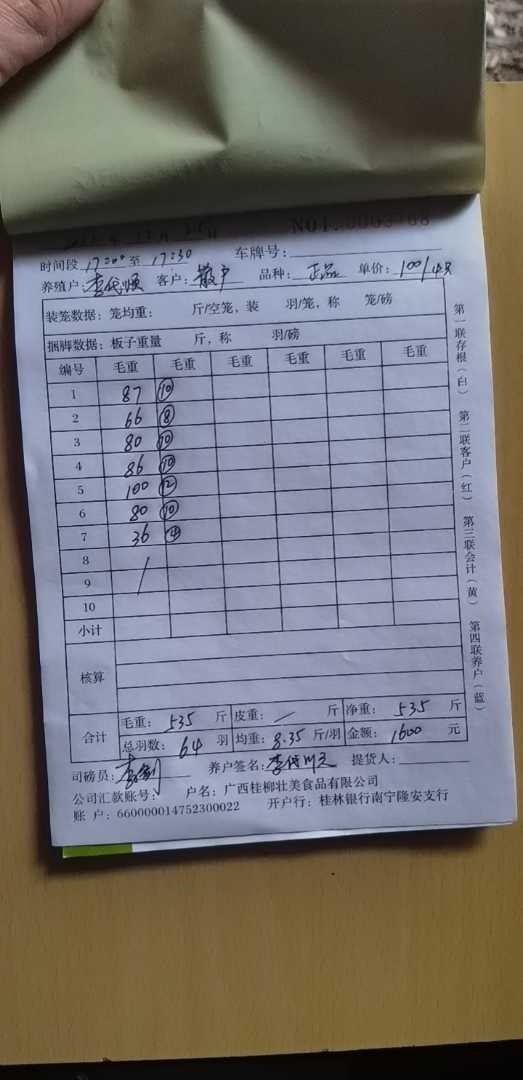 NO1.
时间段 17:00 至 17:30 车牌号：
养殖户：李代顺 客户：散户 品种：正品 单价：100/4只
装笼数据：笼均重： 斤/空笼，装 羽/笼，称 笼/磅
捆脚数据：板子重量 斤，称 羽/磅
编号 毛重 毛重 毛重 毛重 毛重 毛重
1 87 ⑩
2 66 ⑧
3 80 ⑩
4 86 ⑩
5 100 ⑫
6 80 ⑩
7 36 ④
8
9
10
小计
核算
合计
毛重：535 斤 皮重：/ 斤 净重：535 斤
总羽数：64 羽 均重：8.35 斤/羽 金额：1600 元
司磅员： 养户签名： 提货人：
公司汇款账号： 户名：广西桂柳壮美食品有限公司
账 户：660000014752300022 开户行：桂林银行南宁隆安支行
第一联存根（白） 第二联客户（红） 第三联会计（黄） 第四联养户（蓝）